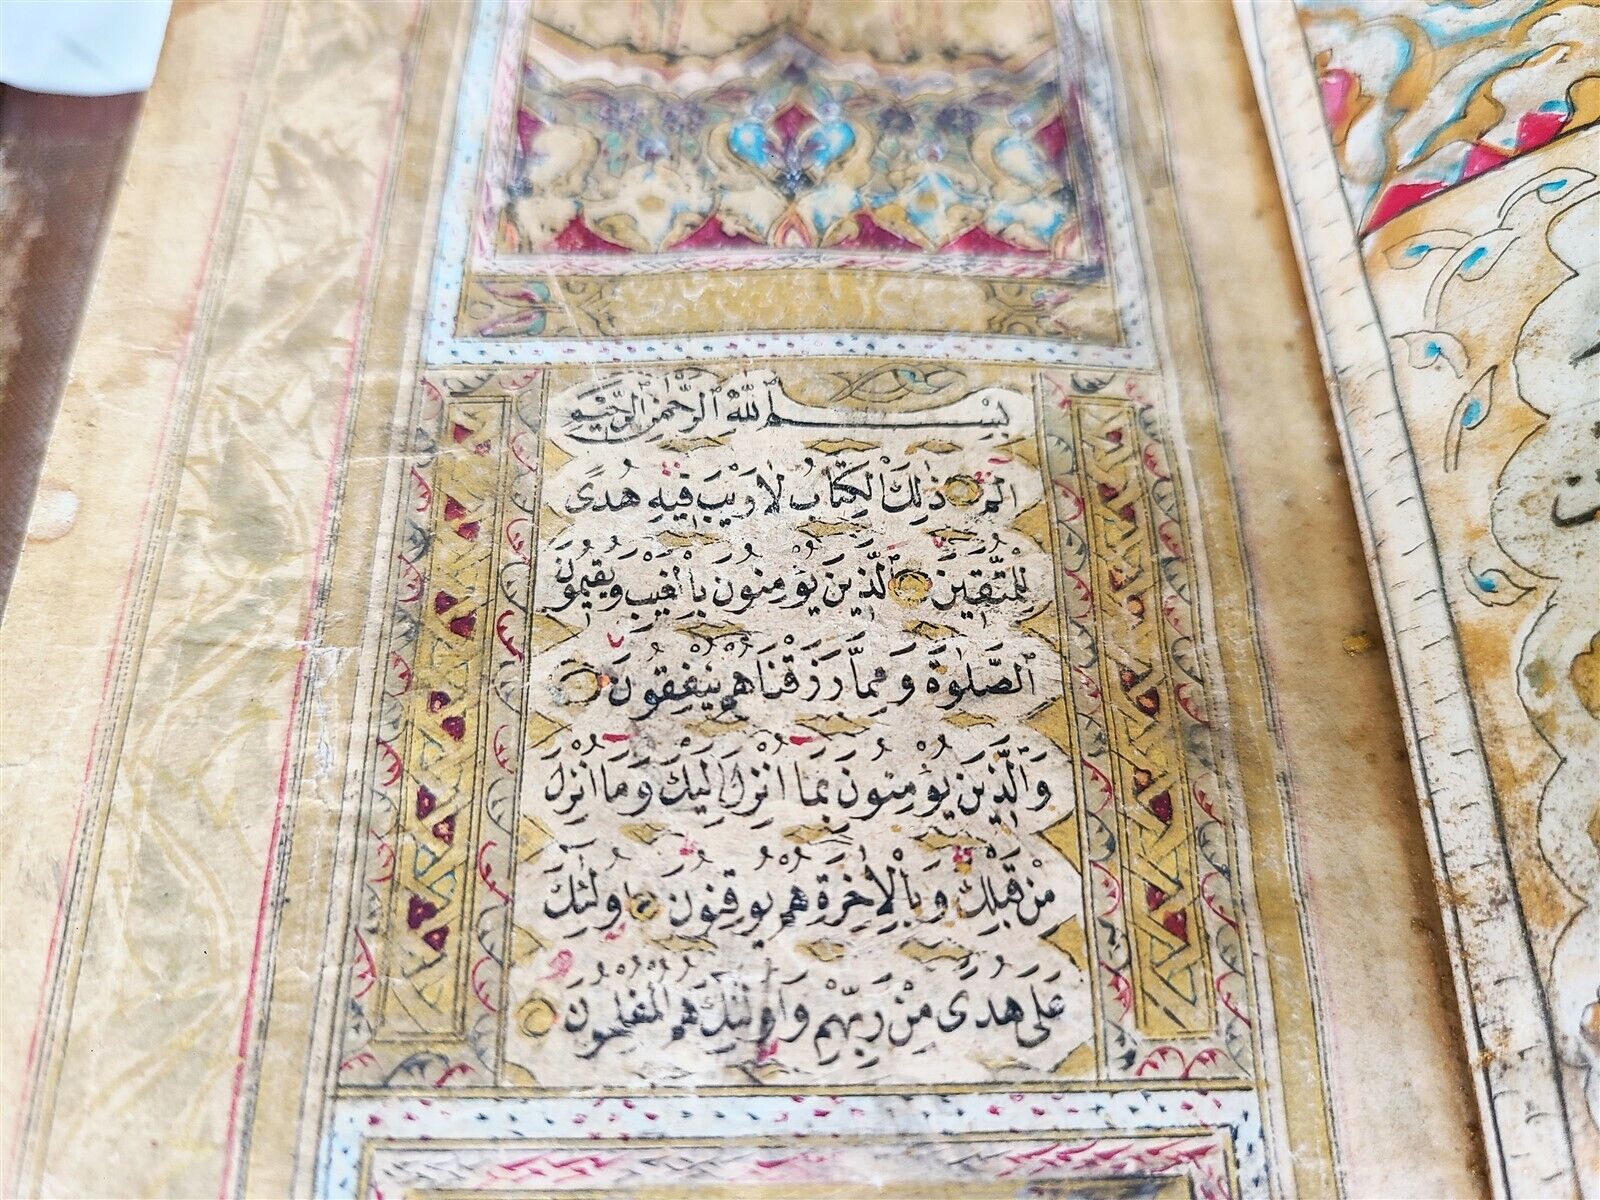 بِسْمِ ٱللَّهِ ٱلرَّحْمٰنِ ٱلرَّحِيْمِ
الٓمٓ ذٰلِكَ الْكِتَابُ لَا رَيْبَ فِيْهِ هُدًى
لِلْمُتَّقِيْنَ ٱلَّذِيْنَ يُؤْمِنُونَ بِالْغَيْبِ وَيُقِيْمُونَ
ٱلصَّلٰوةَ وَمِمَّا رَزَقْنَاهُمْ يُنْفِقُونَ
وَٱلَّذِيْنَ يُؤْمِنُونَ بِمَا اُنْزِلَ اِلَيْكَ وَمَا اُنْزِلَ
مِنْ قَبْلِكَ وَبِالْاٰخِرَةِ هُمْ يُوقِنُونَ اُولٰئِكَ
عَلٰى هُدًى مِنْ رَبِّهِمْ وَاُولٰئِكَ هُمُ الْمُفْلِحُونَ